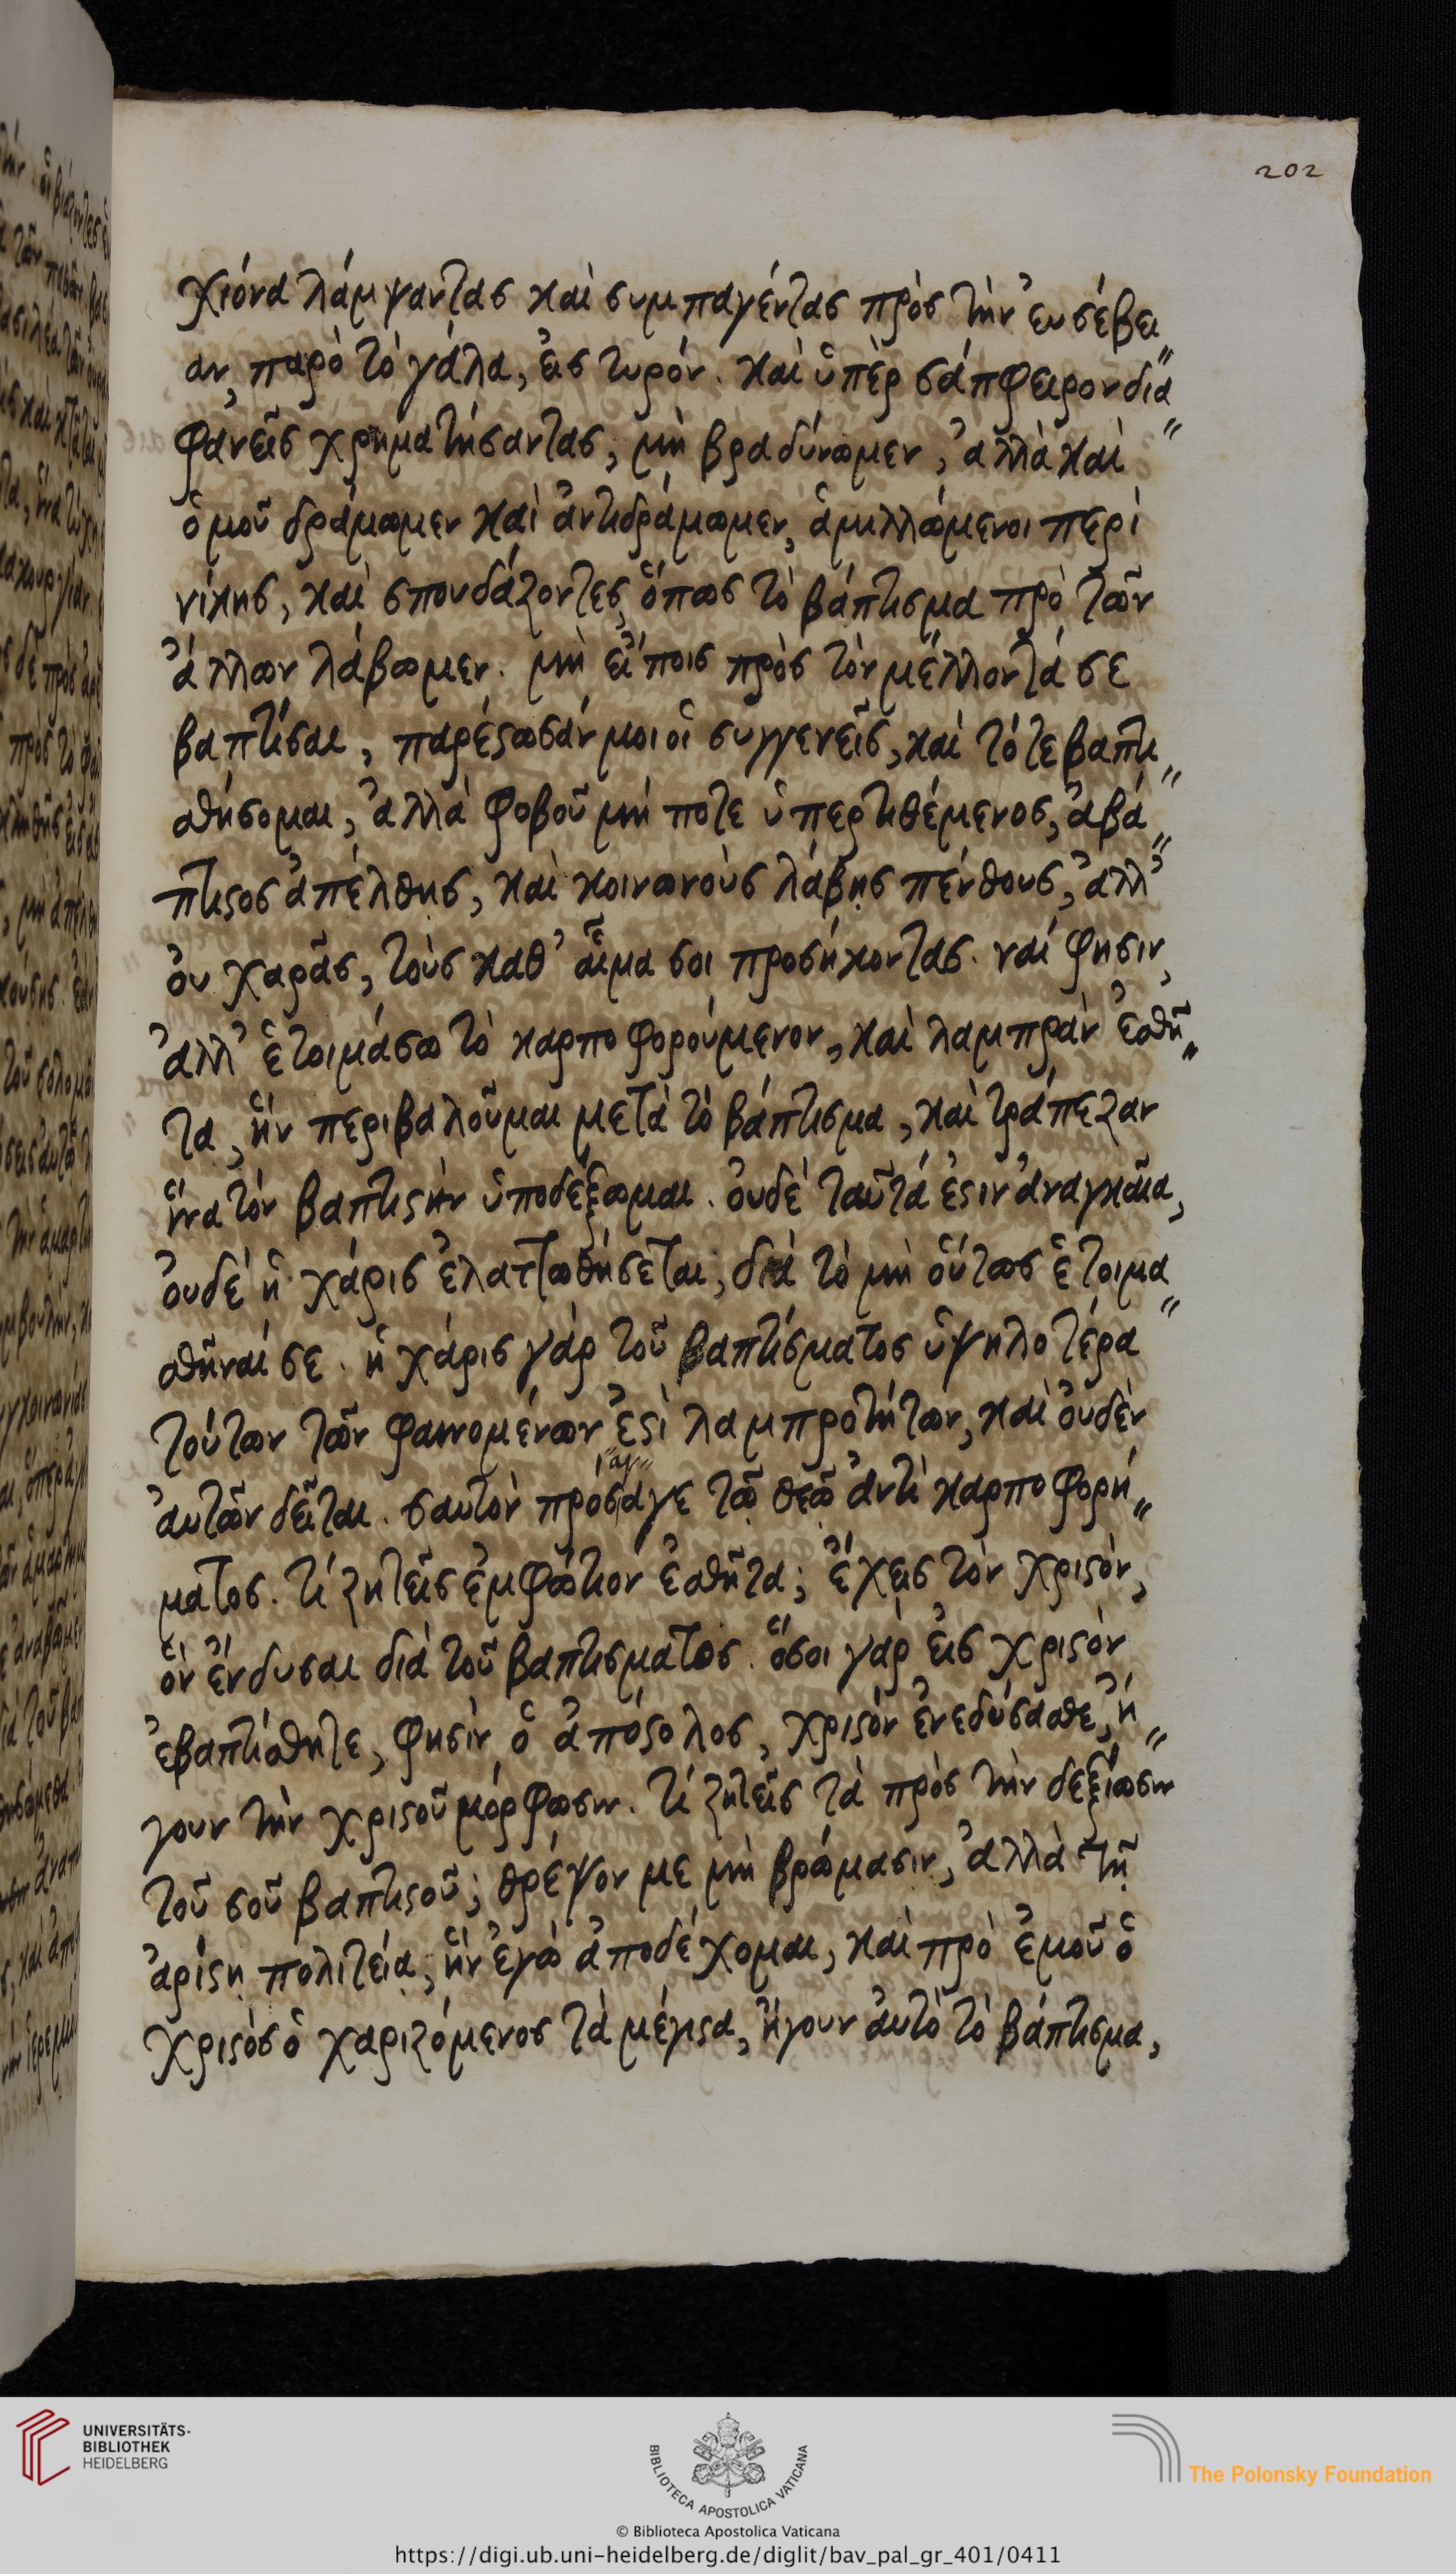 202
χιόνα λάμψαντας καὶ συμπαγέντας πρὸς τὴν ἐυσέβει
αν, παρὸ τὸ γάλα, ἐις τυρόν. καὶ ὑπὲρ σάπφειρον δια
φανεῖς χρηματήσαντας, μὴ βραδύνωμεν, ἀλλὰ καὶ
ὁμοῦ δράμωμεν καὶ ἀντιδράμωμεν, ἁμιλλώμενοι περὶ
νίκης, καὶ σπουδάζοντες, ὅπως τὸ βάπτισμα πρὸ τῶν
ἄλλων λάβωμεν. μὴ εἴποις πρὸς τὸν μέλλοντά σε
βαπτίσαι, παρέστωσάν μοι οἱ συγγενεῖς, καὶ τότε βαπτι
σθήσομαι, ἀλλὰ φοβοῦ μή ποτε ὑπερτιθέμενος, ἀβά
πτιστος ἀπέλθης, καὶ κοινωνοὺς λάβης πένθους, ἀλλ'
ὀυ χαρᾶς, τοὺς καθ' αἷμα σοι προσήκοντας. ναί φησιν,
ἀλλ' ἑτοιμάσω τὸ καρποφορούμενον, καὶ λαμπρὰν ἐσθῆ
τα, ἣν περιβαλοῦμαι μετὰ τὸ βάπτισμα, καὶ τράπεζαν
ἵνα τὸν βαπτιστὴν ὑποδέξωμαι. ὀυδὲ ταῦτά ἐστιν ἀναγκαῖα,
ὀυδὲ ἡ χάρις ἐλαττωθήσεται, διὰ τὸ μὴ ὅυτως ἑτοιμα
σθῆναί σε. ἡ χάρις γὰρ τοῦ βαπτίσματος ὑψηλοτέρα
τούτων τῶν φαινομένων ἐστὶ λαμπροτήτων, καὶ ὀυδὲν
ἀυτῶν δεῖται. σαυτὸν πρόσαγε τῷ θεῷ ἀντὶ καρποφορή
ματος. τί ζητεῖς ἐμφώτιον ἐσθῆτα; ἔχεις τὸν χριστόν,
ὃν ἔνδυσαι διὰ τοῦ βαπτισματος. ὅσοι γὰρ ἐις χριστὸν
ἐβαπτίσθητε, φησὶν ὁ ἀπόστολος, χριστὸν ἐνεδύσασθε, ἤ
γουν τὴν χριστοῦ μόρφωσιν. τί ζητεῖς τὰ πρὸς τὴν δεξίωσιν
τοῦ σοῦ βαπτιστοῦ; θρέψον με μὴ βρώμασιν, ἀλλὰ τῇ
ἀρίστῃ πολιτείᾳ, ἣν ἐγὼ ἀποδέχομαι, καὶ πρὸ ἐμοῦ ὁ
χριστὸς ὁ χαριζόμενος τὰ μέγιστα, ἤγουν ἀυτὸ τὸ βάπτισμα,
UNIVERSITÄTS-
BIBLIOTHEK
HEIDELBERG
BIBLIOTECA APOSTOLICA VATICANA
The Polonsky Foundation
© Biblioteca Apostolica Vaticana
https://digi.ub.uni-heidelberg.de/diglit/bav_pal_gr_401/0411